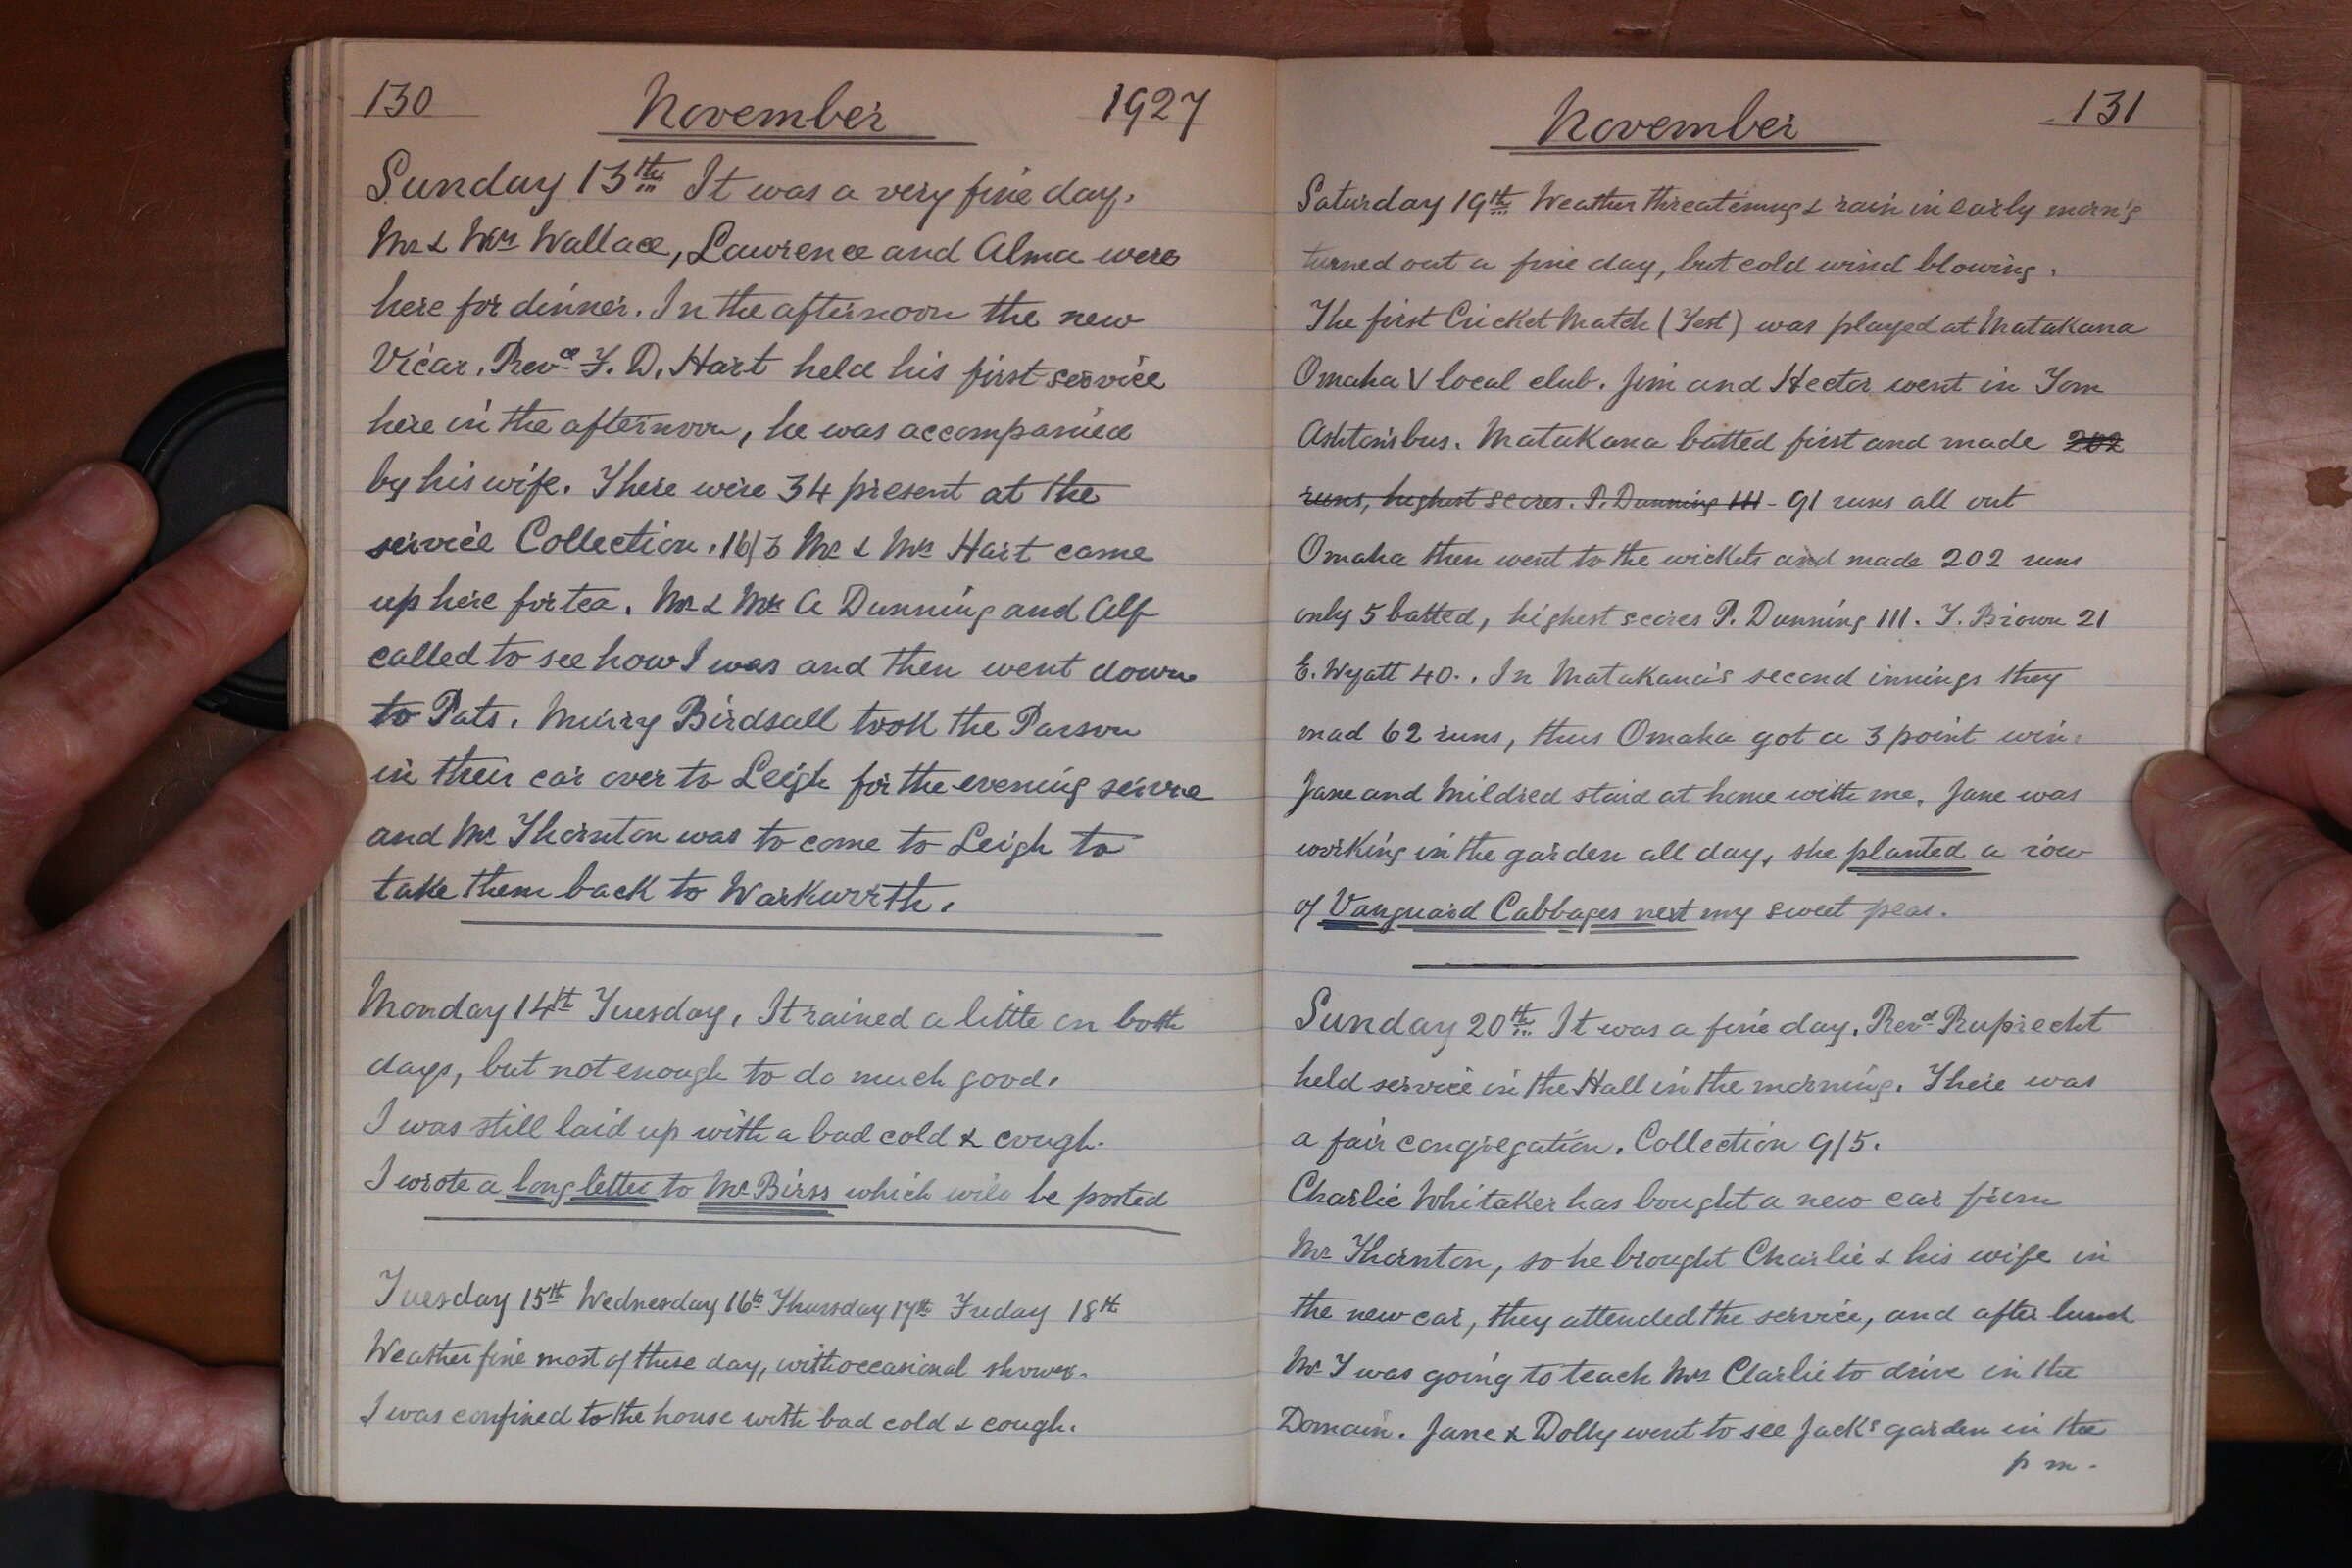 130 November 1927
Sunday 13th It was a very fine day.
Mr & Mrs Wallace, Lawrence and Alma were
here for dinner. In the afternoon the new
Vicar, Revd F. D. Hart held his first service
here in the afternoon, he was accompanied
by his wife. There were 34 present at the
service Collection. 16/3 Mr & Mrs Hart came
up here for tea. Mr & Mrs A Dunning and Alf
called to see how I was and then went down
to Pats. Murry Birdsall took the Parson
in their car over to Leigh for the evening servre
and Mr Thornton was to come to Leigh to
take them back to Warkworth.
Monday 14th Tuesday. It rained a little on both
days, but not enough to do much good.
I was still laid up with a bad cold & cough.
I wrote a long letter to Mr Birss which will be posted
Tuesday 15th Wednesday 16th Thursday 17th Friday 18th
Weather fine most of these day, with occasional shower.
I was confined to the house with bad cold & cough.
November 131
Saturday 19th Weather threatening & rain in early morn'g
turned out a fine day, but cold wind blowing.
The first Cricket Match (Test) was played at Matakana
Omaha V local club. Jim and Hector went in Tom
Ashton's bus. Matakana batted first and made 202
runs, highest scores. P. Dunning 111 - 91 runs all out
Omaha then went to the wickets and made 202 runs
only 5 batted, highest scores P. Dunning 111. T. Brown 21
E. Wyatt 40.. In Matakana's second innings they
mad 62 runs, thus Omaha got a 3 point win.
Jane and Mildred staid at home with me. Jane was
working in the garden all day, she planted a row
of Vanguard Cabbages next my sweet peas.
Sunday 20th It was a fine day. Revd Ruprecht
held service in the Hall in the morning. There was
a fair congregation. Collection 9/5.
Charlie Whitaker has bought a new car from
Mr Thornton, so he brought Charlie & his wife in
the new car, they attended the service, and after lunch
Mr T was going to teach Mrs Charlie to drive in the
Domain. Jane & Dolly went to see Jack's garden in the
p m.